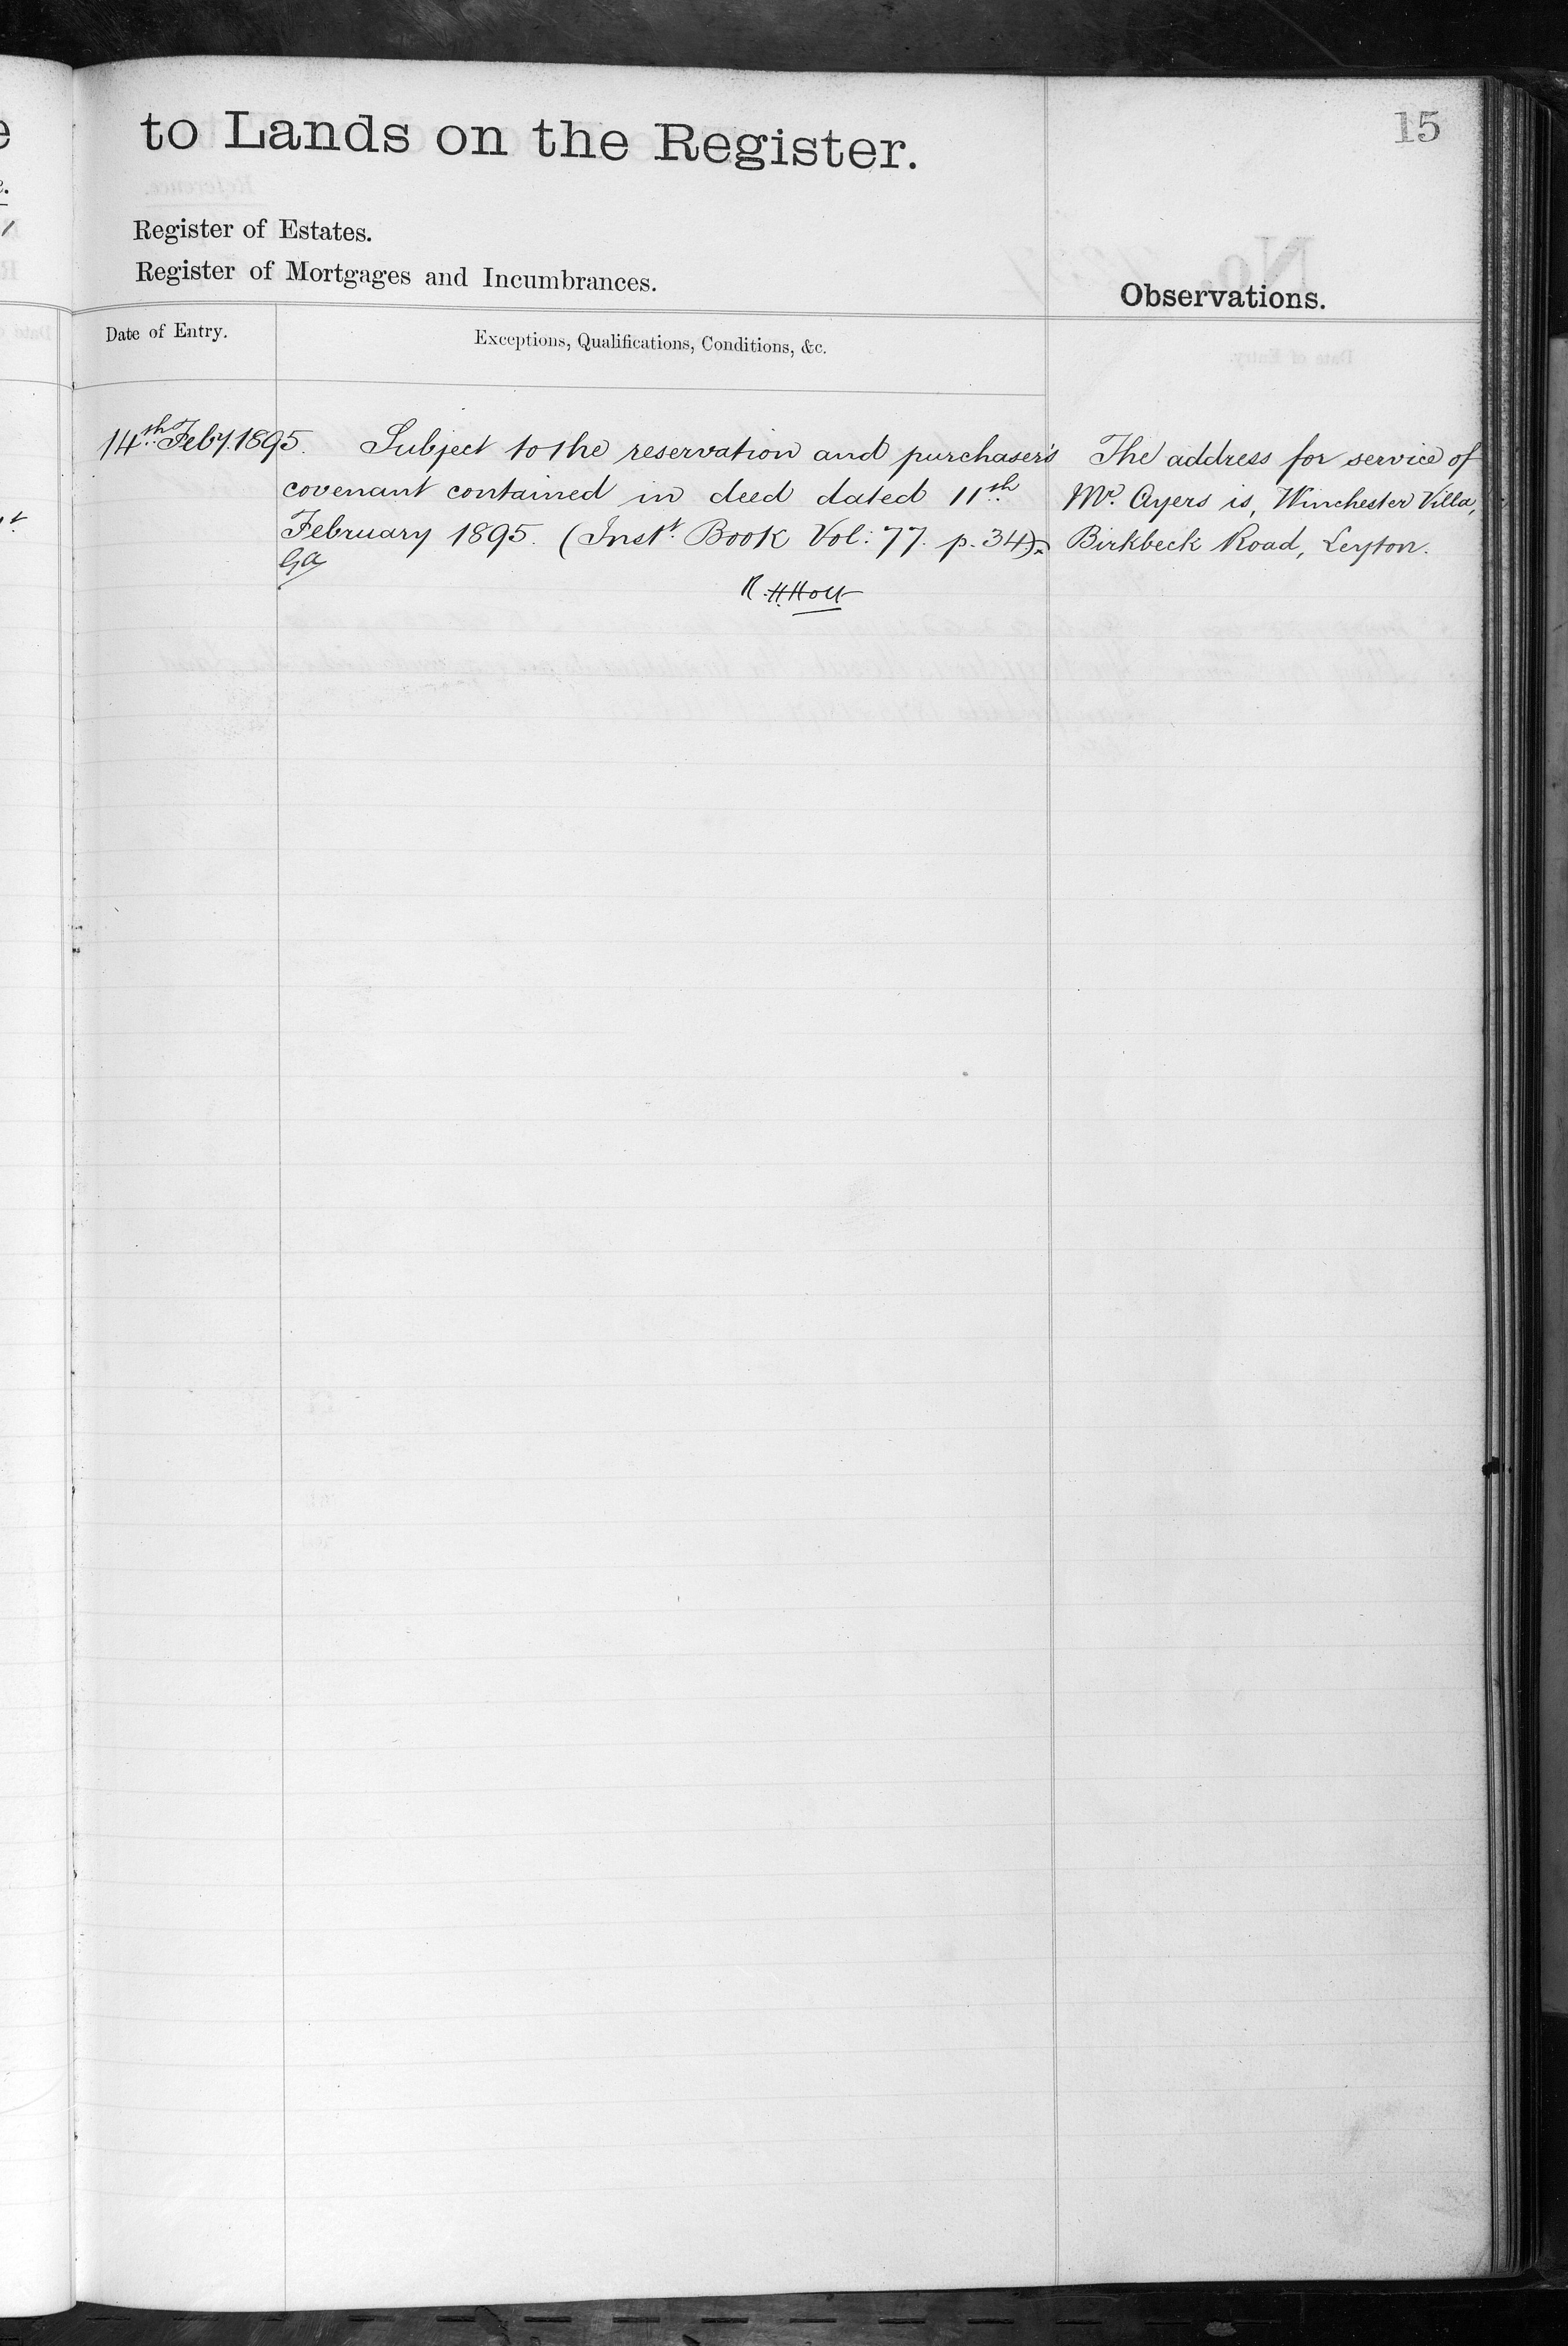 15
to Lands on the Register.
Register of Estates.
Register of Mortgages and Incumbrances.
Observations.
Date of Entry.
Exceptions, Qualifications, Conditions, &c.
14th Feby. 1895.
Subject to the reservation and purchaser's
covenant contained in deed dated 11th
February 1895. (Inst. Book Vol: 77. p. 34).
R. H. Holt
The address for service of
Mr. Ayers is, Winchester Villa,
Birkbeck Road, Leyton.